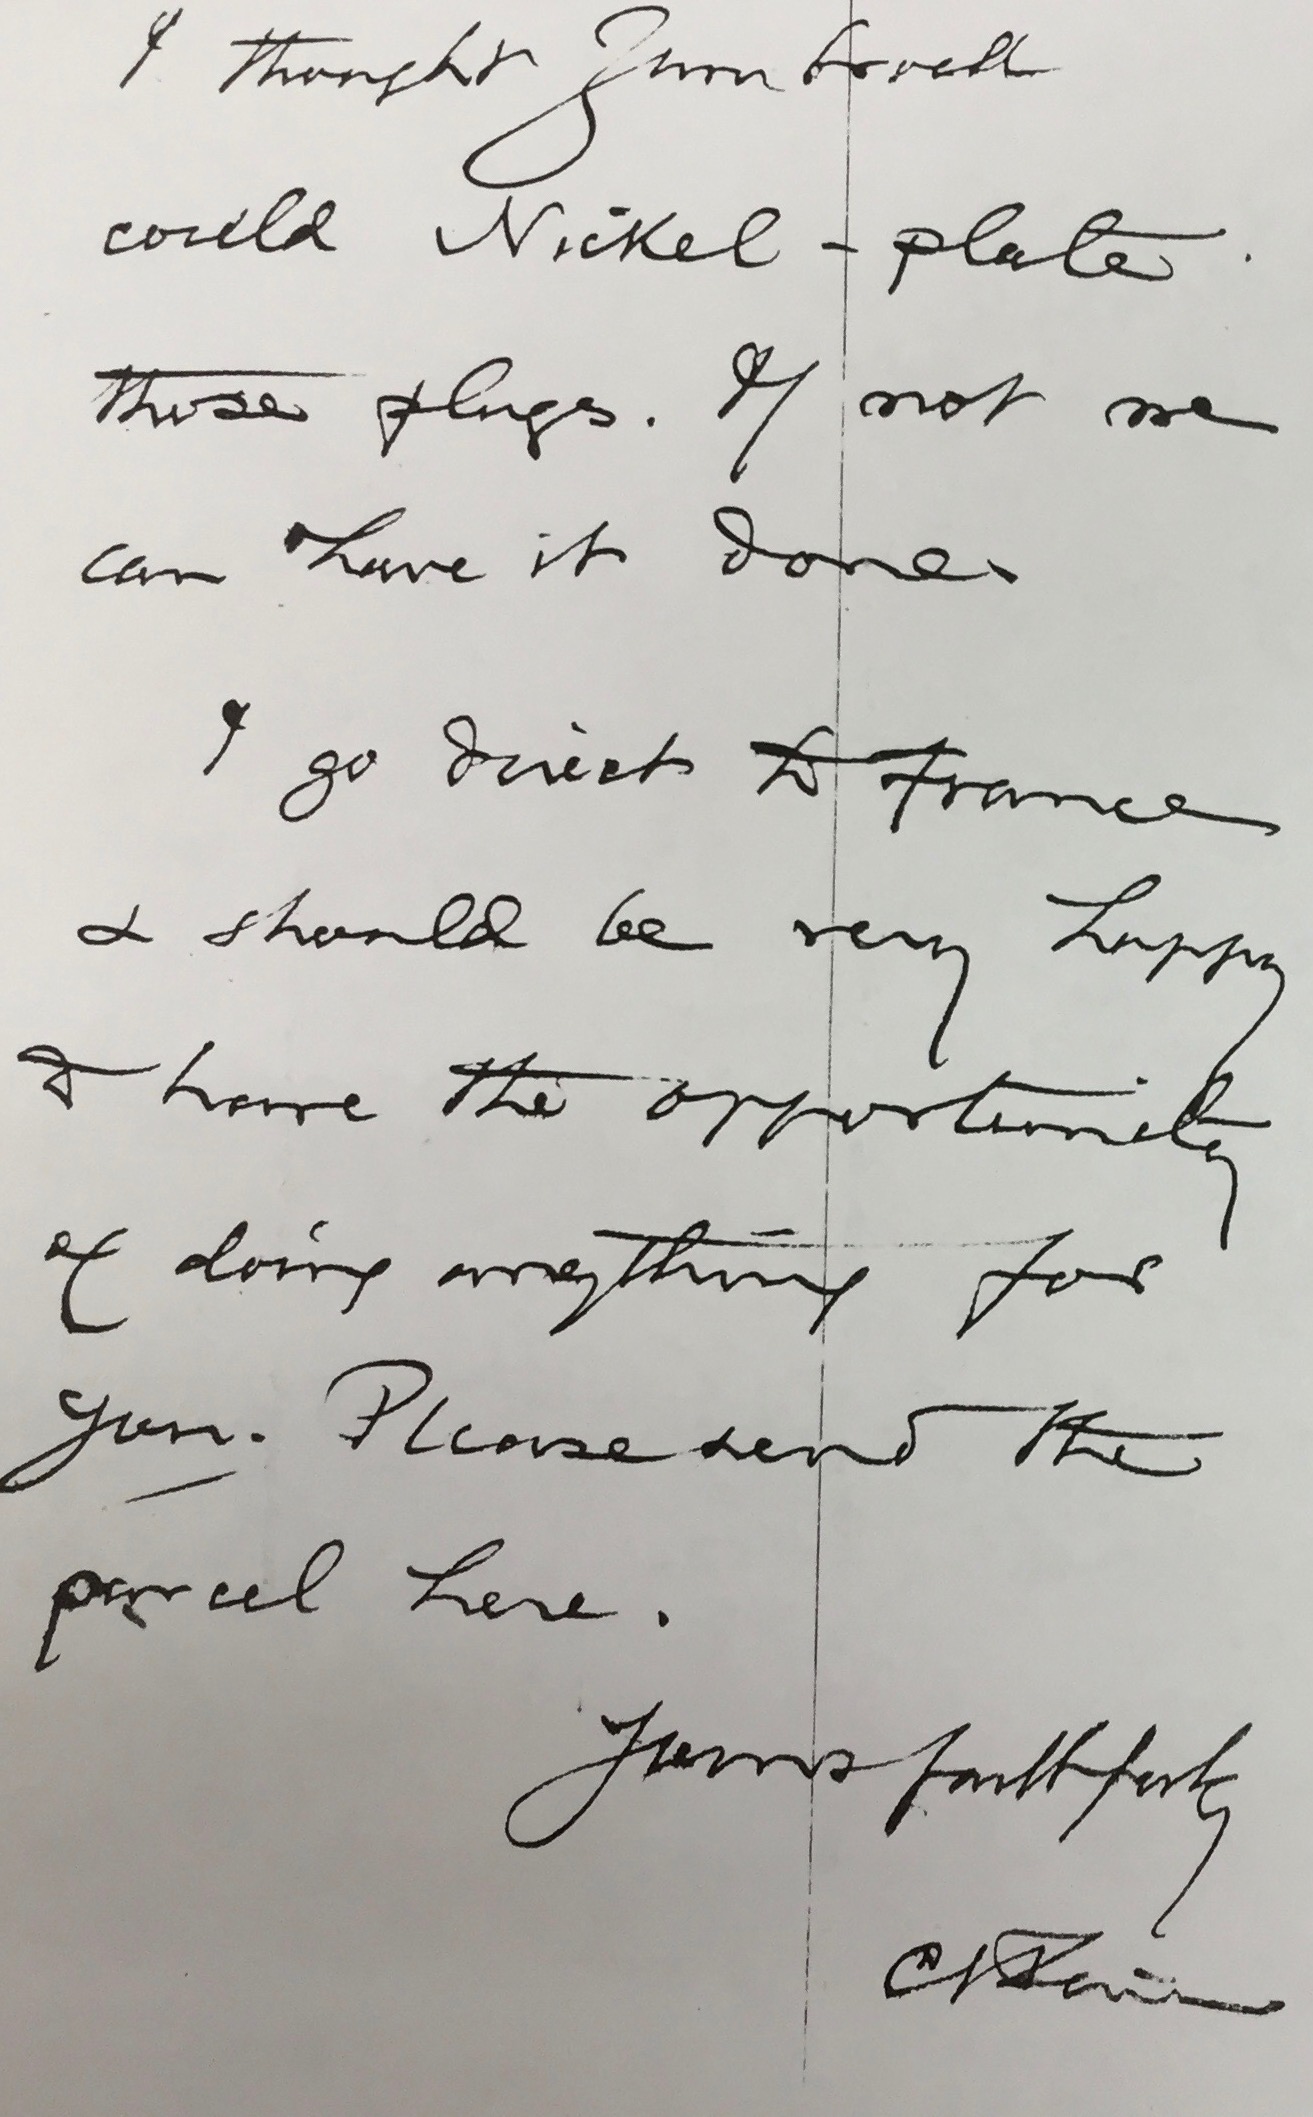 I thought Zumbroch
could Nickel-plate
those plugs. If not we
can have it done.
I go direct to France
& should be very happy
to have the opportunity
of doing anything for
you. Please send the
parcel here.
Yours faithfully